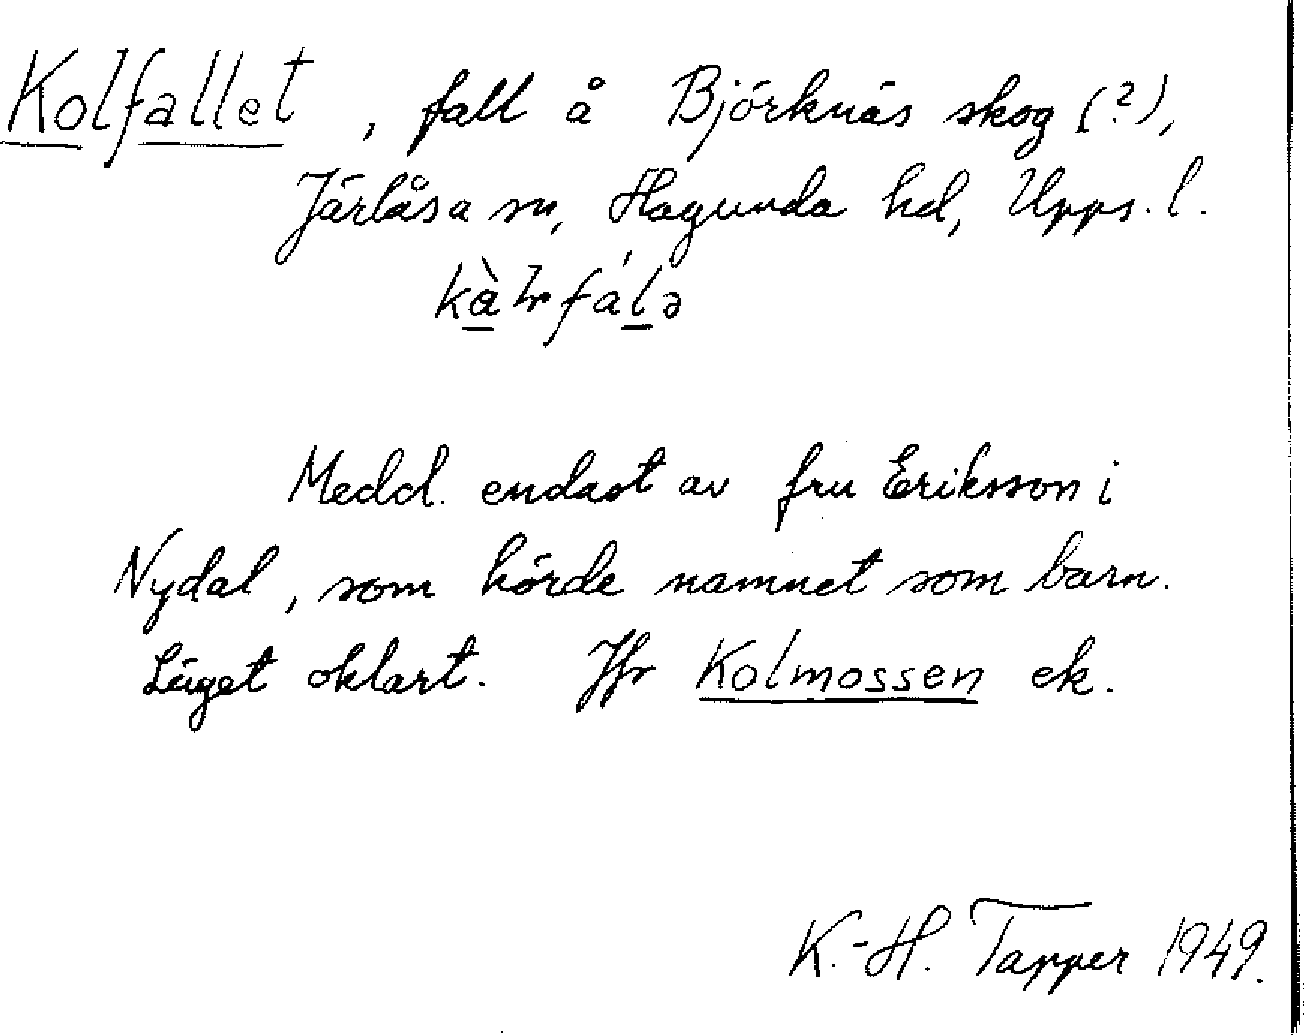 Kolfallet, fall å Björknäs skog (?),
Järlåsa sn, Hagunda hd, Upps. l.
Medd. endast av fru Eriksson i
Nydal, som hörde namnet som barn.
Läget oklart. Jfr Kolmossen ek.
K.-H. Tapper 1949.